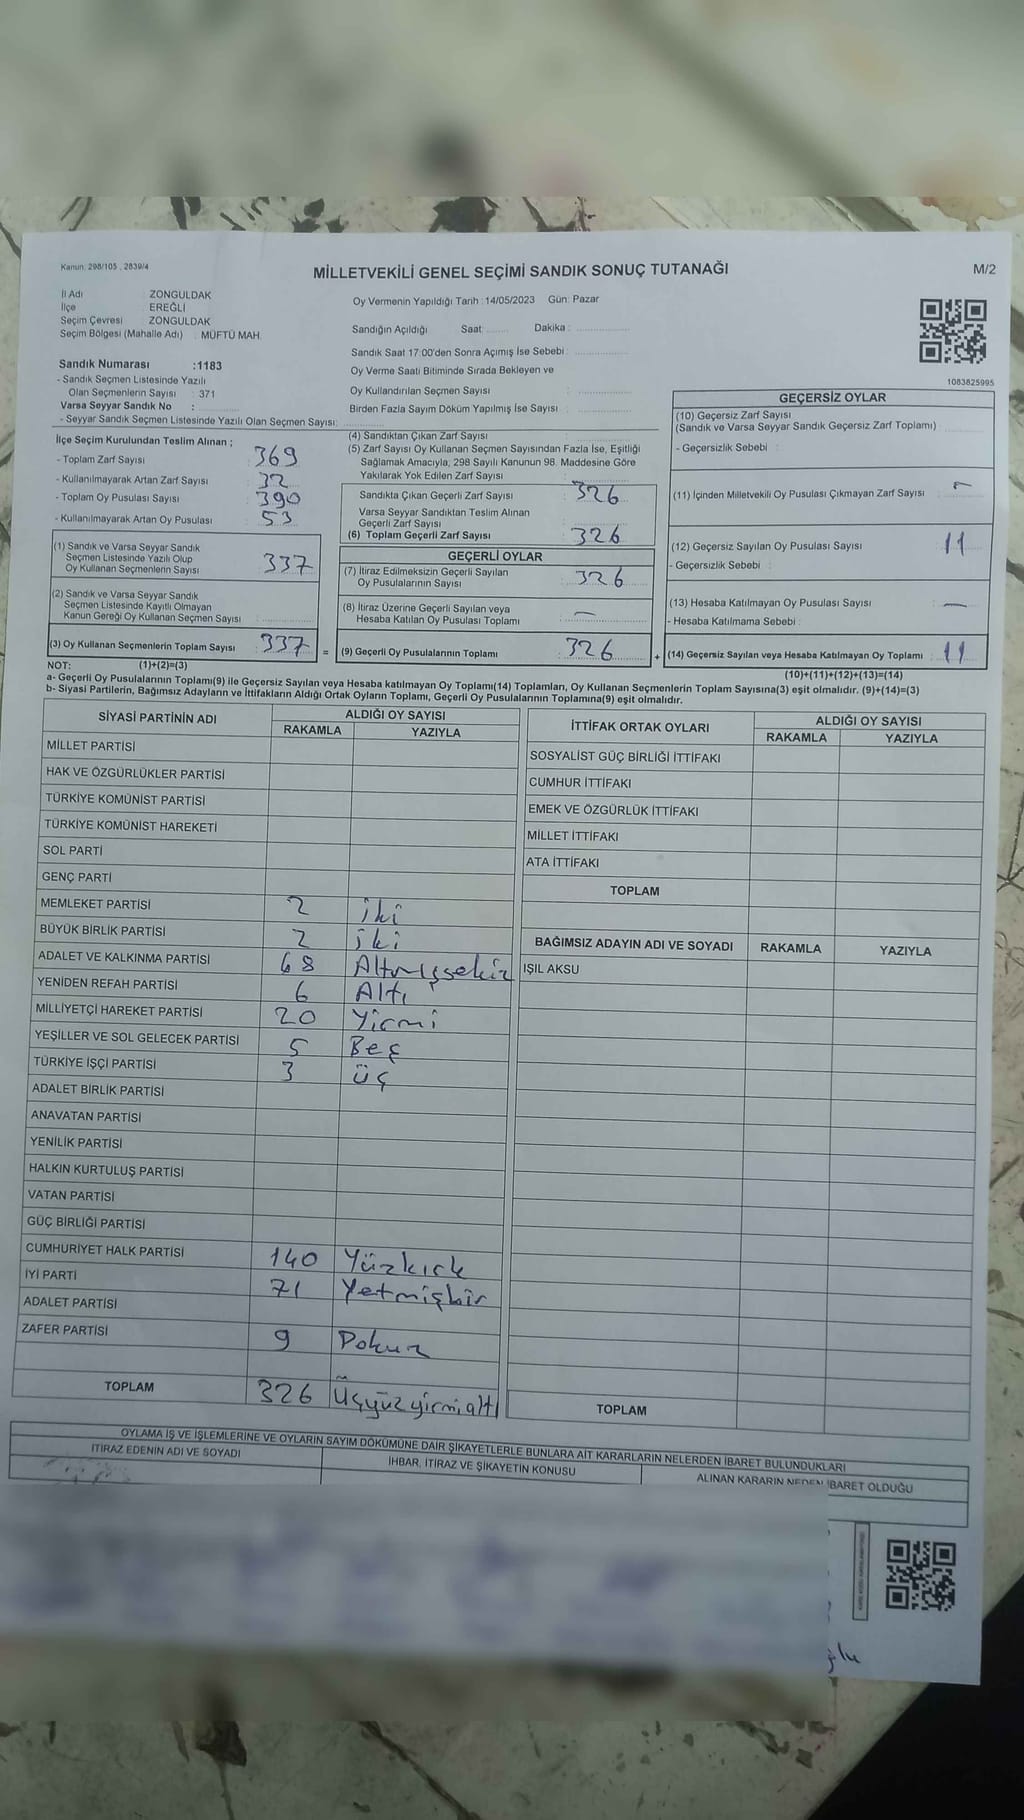 Kanun: 298/105 , 2839/4
MİLLETVEKİLİ GENEL SEÇİMİ SANDIK SONUÇ TUTANAĞI
M/2
İl Adı : ZONGULDAK
İlçe : EREĞLİ
Seçim Çevresi : ZONGULDAK
Seçim Bölgesi (Mahalle Adı) : MÜFTÜ MAH.
Sandık Numarası :1183
- Sandık Seçmen Listesinde Yazılı
Olan Seçmenlerin Sayısı : 371
Varsa Seyyar Sandık No :
- Seyyar Sandık Seçmen Listesinde Yazılı Olan Seçmen Sayısı:
Oy Vermenin Yapıldığı Tarih :14/05/2023 Gün: Pazar
Sandığın Açıldığı Saat: Dakika :
Sandık Saat 17:00'den Sonra Açımış İse Sebebi :
Oy Verme Saati Bitiminde Sırada Bekleyen ve
Oy Kullandırılan Seçmen Sayısı :
Birden Fazla Sayım Döküm Yapılmış İse Sayısı :
1083825995
İlçe Seçim Kurulundan Teslim Alınan ;
- Toplam Zarf Sayısı : 369
- Kullanılmayarak Artan Zarf Sayısı : 32
- Toplam Oy Pusulası Sayısı : 390
- Kullanılmayarak Artan Oy Pusulası : 53
(1) Sandık ve Varsa Seyyar Sandık
Seçmen Listesinde Yazılı Olup
Oy Kullanan Seçmenlerin Sayısı : 337
(2) Sandık ve Varsa Seyyar Sandık
Seçmen Listesinde Kayıtlı Olmayan
Kanun Gereği Oy Kullanan Seçmen Sayısı :
(3) Oy Kullanan Seçmenlerin Toplam Sayısı : 337 =
(4) Sandıktan Çıkan Zarf Sayısı :
(5) Zarf Sayısı Oy Kullanan Seçmen Sayısından Fazla İse, Eşitliği
Sağlamak Amacıyla, 298 Sayılı Kanunun 98. Maddesine Göre
Yakılarak Yok Edilen Zarf Sayısı
Sandıkta Çıkan Geçerli Zarf Sayısı : 326
Varsa Seyyar Sandıktan Teslim Alınan
Geçerli Zarf Sayısı
(6) Toplam Geçerli Zarf Sayısı : 326
GEÇERLİ OYLAR
(7) İtiraz Edilmeksizin Geçerli Sayılan
Oy Pusulalarının Sayısı : 326
(8) İtiraz Üzerine Geçerli Sayılan veya
Hesaba Katılan Oy Pusulası Toplamı : –
(9) Geçerli Oy Pusulalarının Toplamı : 326 +
GEÇERSİZ OYLAR
(10) Geçersiz Zarf Sayısı
(Sandık ve Varsa Seyyar Sandık Geçersiz Zarf Toplamı) :
- Geçersizlik Sebebi :
(11) İçinden Milletvekili Oy Pusulası Çıkmayan Zarf Sayısı : –
(12) Geçersiz Sayılan Oy Pusulası Sayısı : 11
- Geçersizlik Sebebi :
(13) Hesaba Katılmayan Oy Pusulası Sayısı : –
- Hesaba Katılmama Sebebi :
(14) Geçersiz Sayılan veya Hesaba Katılmayan Oy Toplamı : 11
NOT: (1)+(2)=(3) (10)+(11)+(12)+(13)=(14)
a- Geçerli Oy Pusulalarının Toplamı(9) ile Geçersiz Sayılan veya Hesaba Katılmayan Oy Toplamı(14) Toplamları, Oy Kullanan Seçmenlerin Toplam Sayısına(3) eşit olmalıdır. (9)+(14)=(3)
b- Siyasi Partilerin, Bağımsız Adayların ve İttifakların Aldığı Ortak Oyların Toplamı, Geçerli Oy Pusulalarının Toplamına(9) eşit olmalıdır.
SİYASİ PARTİNİN ADI ALDIĞI OY SAYISI
RAKAMLA YAZIYLA
MİLLET PARTİSİ
HAK VE ÖZGÜRLÜKLER PARTİSİ
TÜRKİYE KOMÜNİST PARTİSİ
TÜRKİYE KOMÜNİST HAREKETİ
SOL PARTİ
GENÇ PARTİ
MEMLEKET PARTİSİ 2 iki
BÜYÜK BİRLİK PARTİSİ 2 iki
ADALET VE KALKINMA PARTİSİ 68 Altmışsekiz
YENİDEN REFAH PARTİSİ 6 Altı
MİLLİYETÇİ HAREKET PARTİSİ 20 Yirmi
YEŞİLLER VE SOL GELECEK PARTİSİ 5 Beş
TÜRKİYE İŞÇİ PARTİSİ 3 üç
ADALET BİRLİK PARTİSİ
ANAVATAN PARTİSİ
YENİLİK PARTİSİ
HALKIN KURTULUŞ PARTİSİ
VATAN PARTİSİ
GÜÇ BİRLİĞİ PARTİSİ
CUMHURİYET HALK PARTİSİ 140 Yüzkırk
İYİ PARTİ 71 Yetmişbir
ADALET PARTİSİ
ZAFER PARTİSİ 9 Dokuz
TOPLAM 326 Üçyüzyirmialtı
İTTİFAK ORTAK OYLARI ALDIĞI OY SAYISI
RAKAMLA YAZIYLA
SOSYALİST GÜÇ BİRLİĞİ İTTİFAKI
CUMHUR İTTİFAKI
EMEK VE ÖZGÜRLÜK İTTİFAKI
MİLLET İTTİFAKI
ATA İTTİFAKI
TOPLAM
BAĞIMSIZ ADAYIN ADI VE SOYADI RAKAMLA YAZIYLA
IŞIL AKSU
TOPLAM
OYLAMA İŞ VE İŞLEMLERİNE VE OYLARIN SAYIM DÖKÜMÜNE DAİR ŞİKAYETLERLE BUNLARA AİT KARARLARIN NELERDEN İBARET BULUNDUKLARI
İTİRAZ EDENİN ADI VE SOYADI
İHBAR, İTİRAZ VE ŞİKAYETİN KONUSU
ALINAN KARARIN NEDEN İBARET OLDUĞU